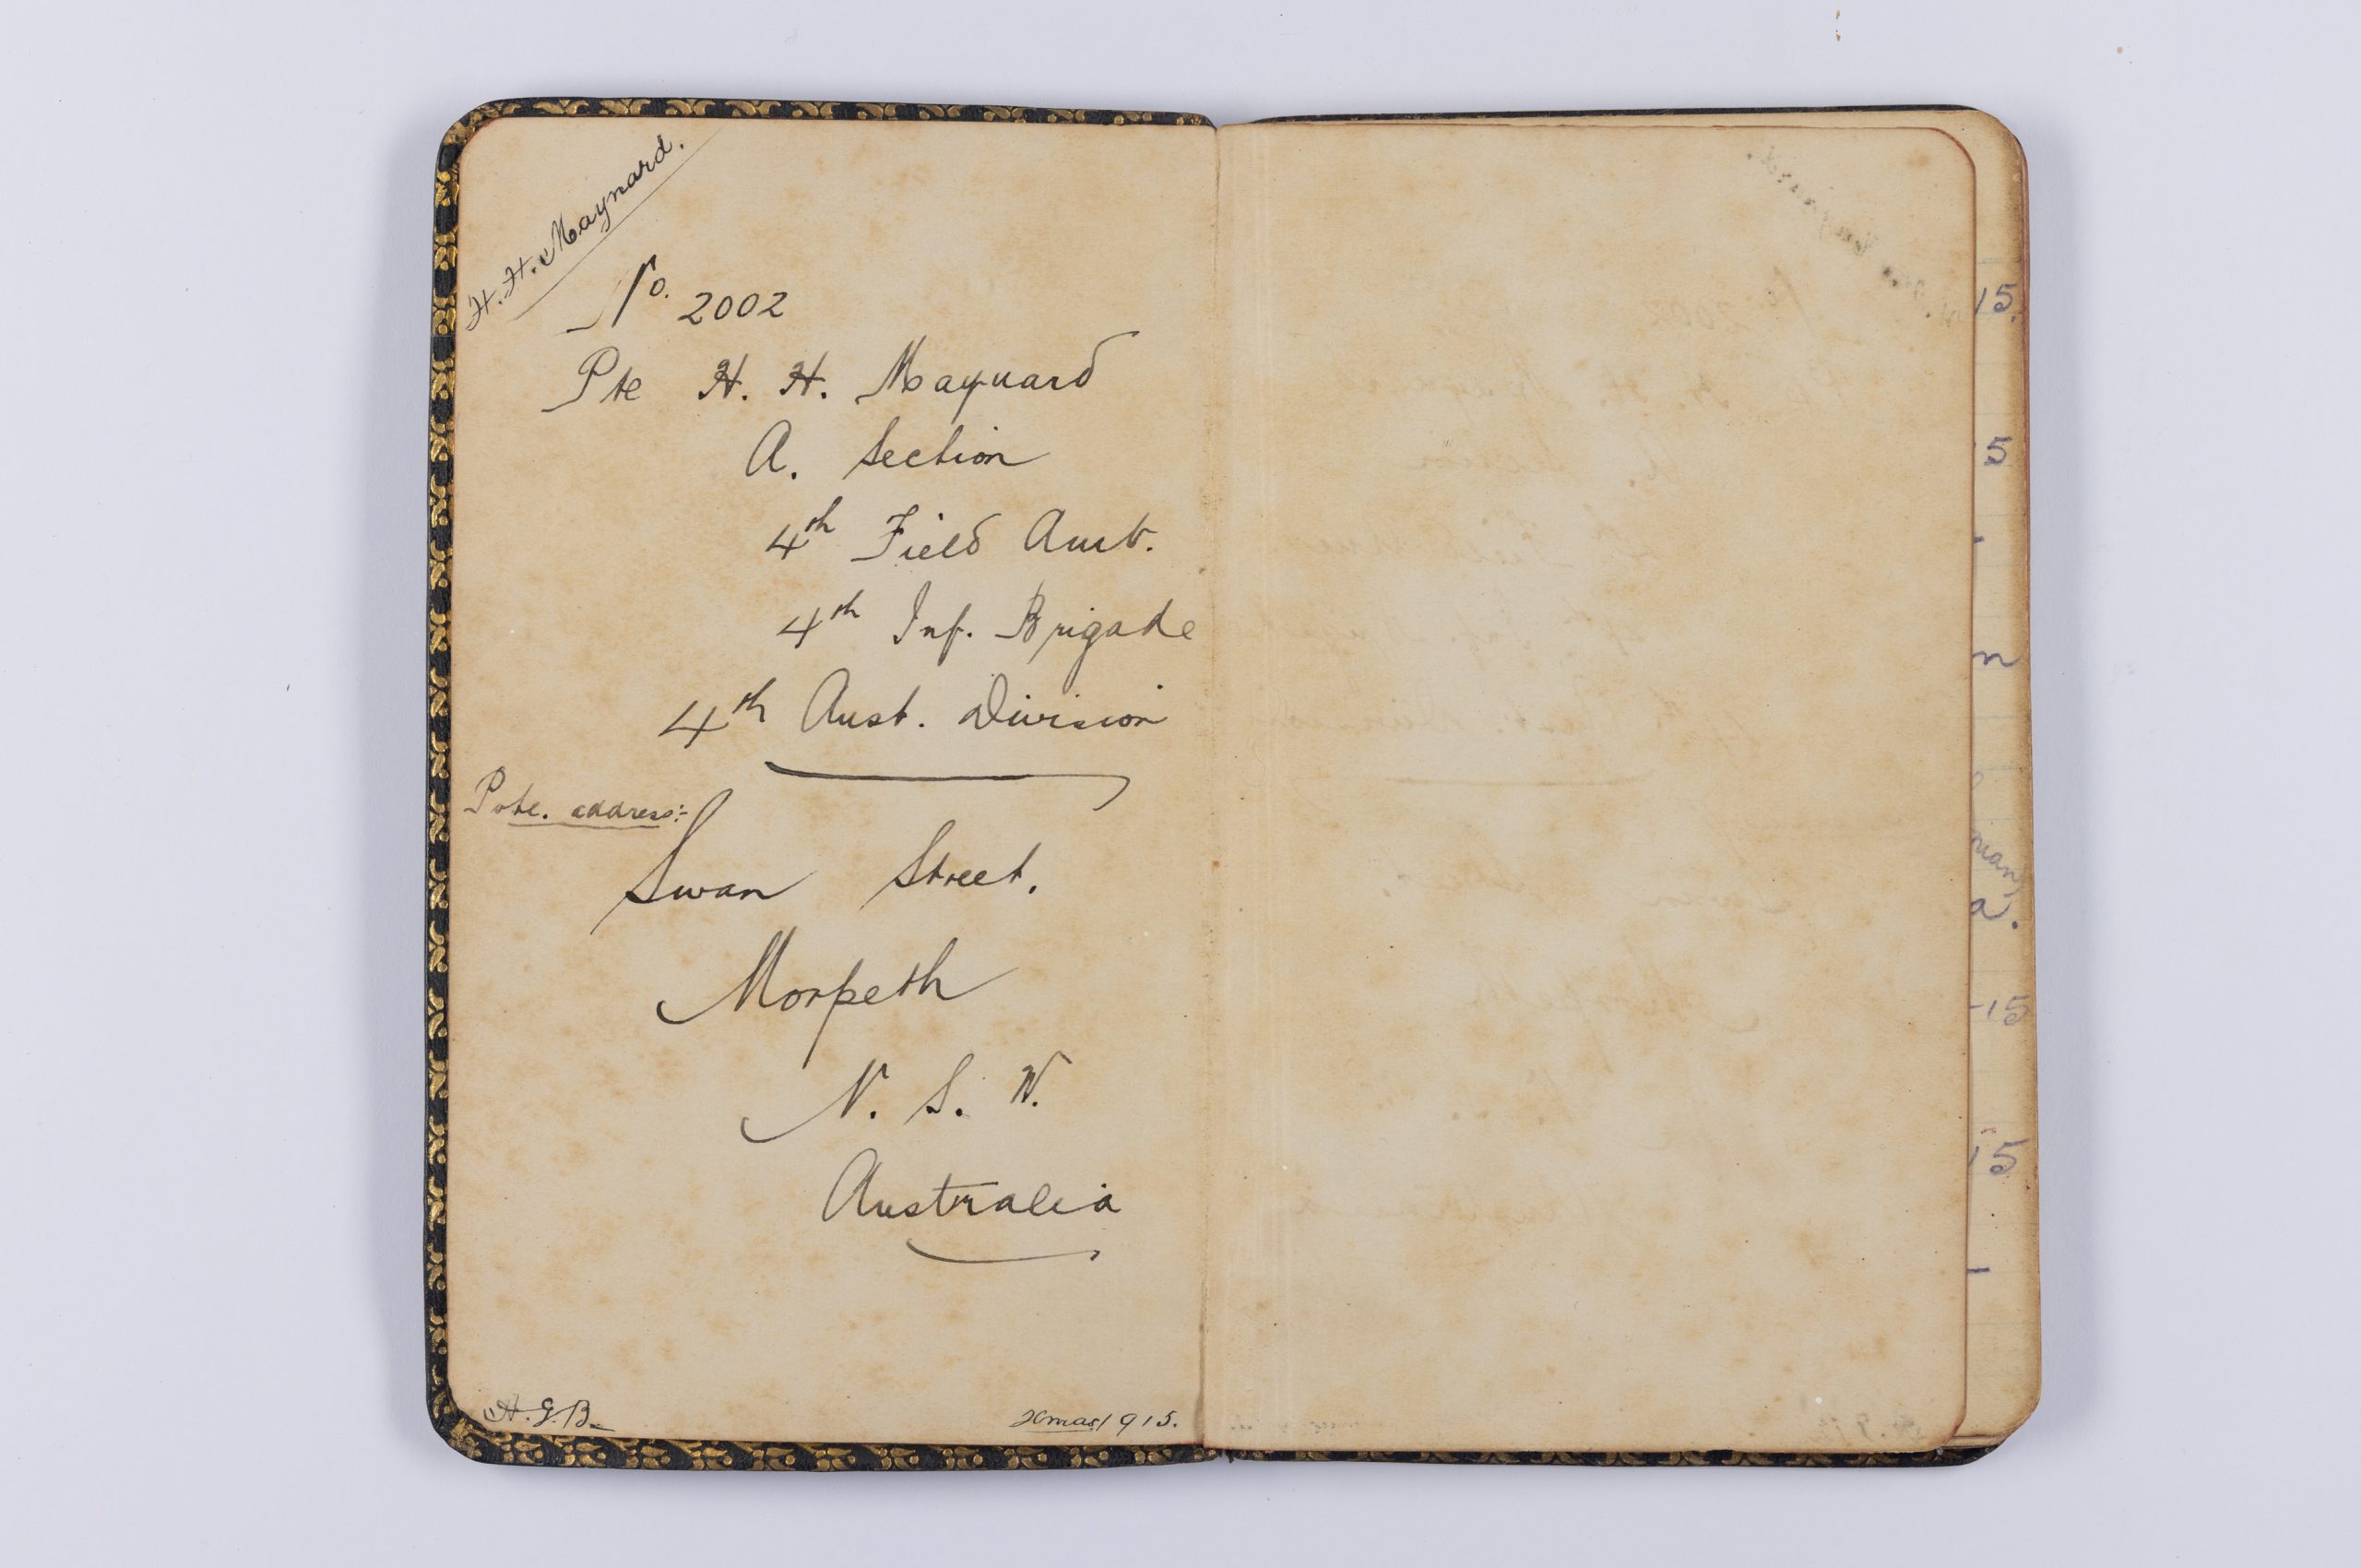 H. H. Maynard.
No. 2002
Pte H. H. Maynard
A. Section
4th Field Amb.
4th Inf. Brigade
4th Aust. Division
Pvte. address:-
Swan Street.
Morpeth
N. S. W.
Australia
H. G. B. Xmas 1915.
15.
5
n
man)
a.
-15
15